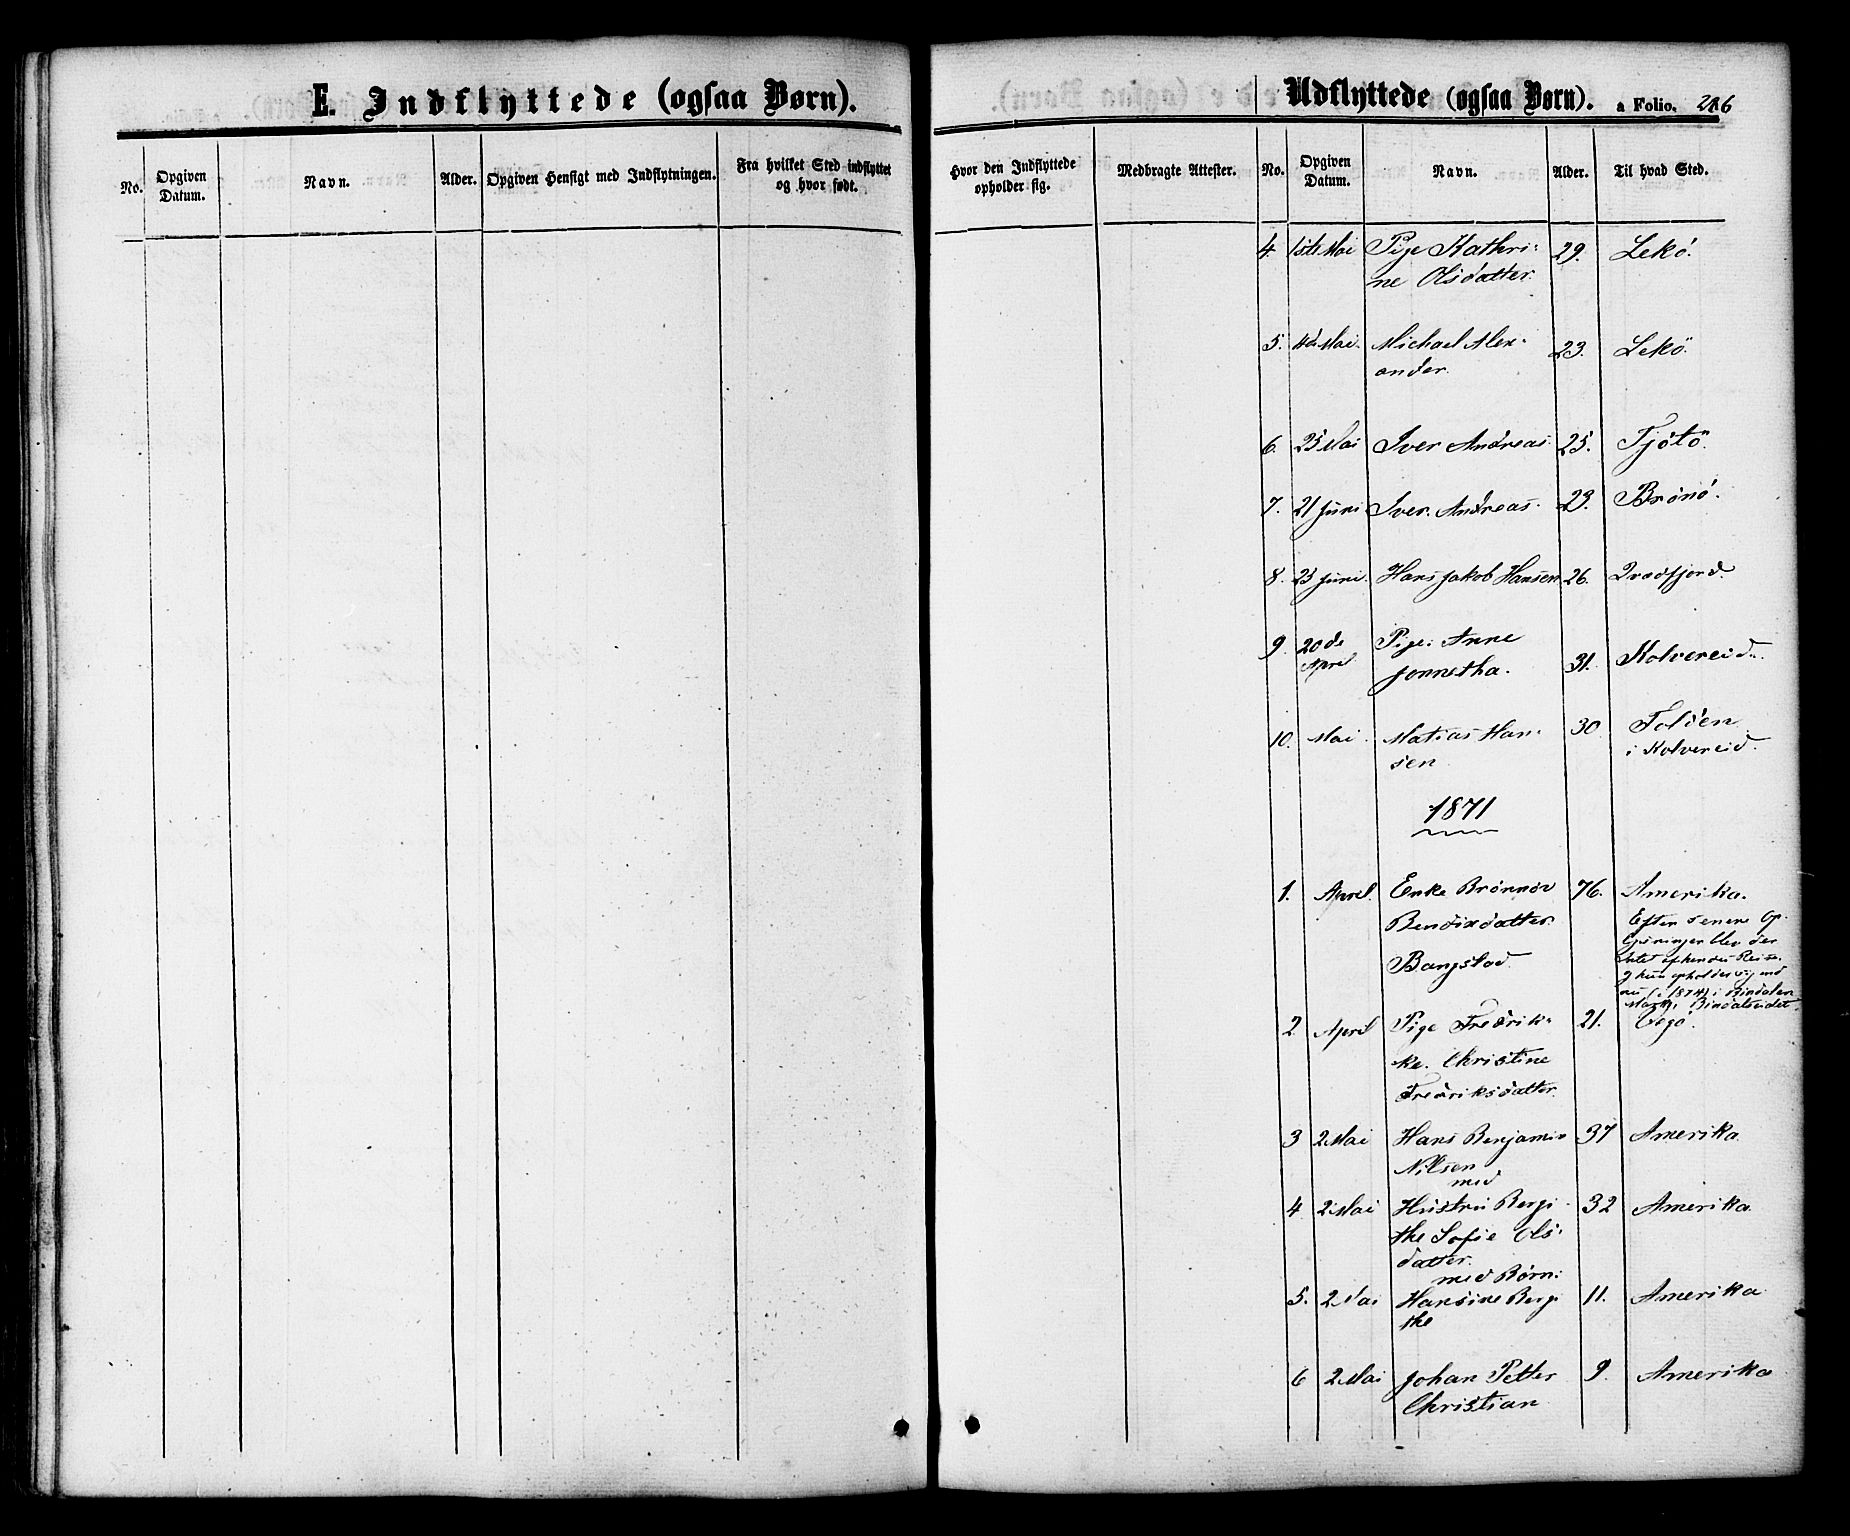 E. Indflyttede (ogsaa Børn).
No.
Opgiven Datum.
Navn.
Alder.
Opgiven Hensigt med Indflytningen.
Fra hvilket Sted indflyttet
og hvor født.
Hvor den Indflyttede
opholder sig.
Medbragte Attester.
Udflyttede (ogsaa Børn). a Folio. 216
No.
Opgiven Datum.
Navn.
Alder.
Til hvad Sted.
4. Mai Pige Kathri- 29. Lekö.
ne Olsdatter.
5. Mai. Michael Alex- 23. Lekö.
ander.
6. 25 Mai Iver Andreas. 25. Tjötö.
7. 21 Juni Iver Andreas. 23. Brönö.
8. 23 Juni. Hans Jakob Hansen 26. Qvædfjord.
9. 20de April Pige Anne
Jonnetha. 31. Kolvereid.
10. Mai. Matias Han- 30. Folden
sen i Kolvereid.
1871
1. April. Enke Brönnöv 76. Amerika.
Bendixdatter Efter senere Op-
lysninger blev der
Bangstad intet af hendes Reise.
nu (i 1874) i Bindalen
Bindalseidet.
2. April Pige Fredrik- 21. Vegö.
ke. Christine
Fredriksdatter.
3 2 Mai Hans Benjamin 37 Amerika
Nilsen
med
4 2 Mai Hustru Bergi- 32 Amerika.
the Sofie Ols-
datter.
med Børn:
5. 2 Mai Hansine Bergi 11. Amerika.
the
6 2 Mai Johan Petter 9. Amerika
Christian